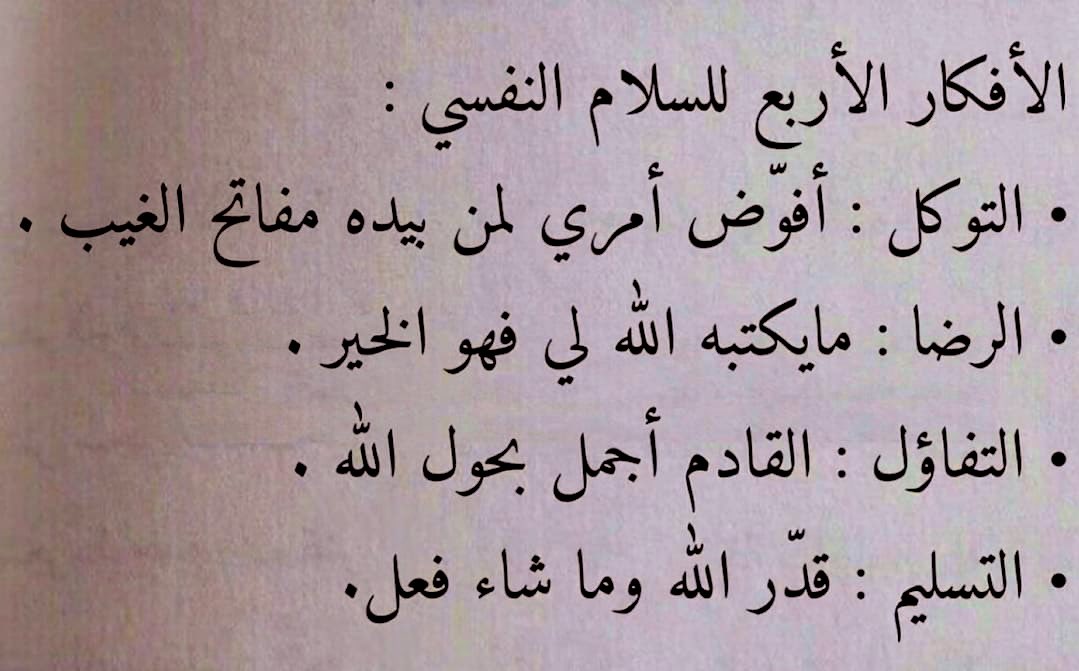 الأفكار الأربع للسلام النفسي :
• التوكل : أفوّض أمري لمن بيده مفاتح الغيب .
• الرضا : مايكتبه الله لي فهو الخير .
• التفاؤل : القادم أجمل بحول الله .
• التسليم : قدّر الله وما شاء فعل.